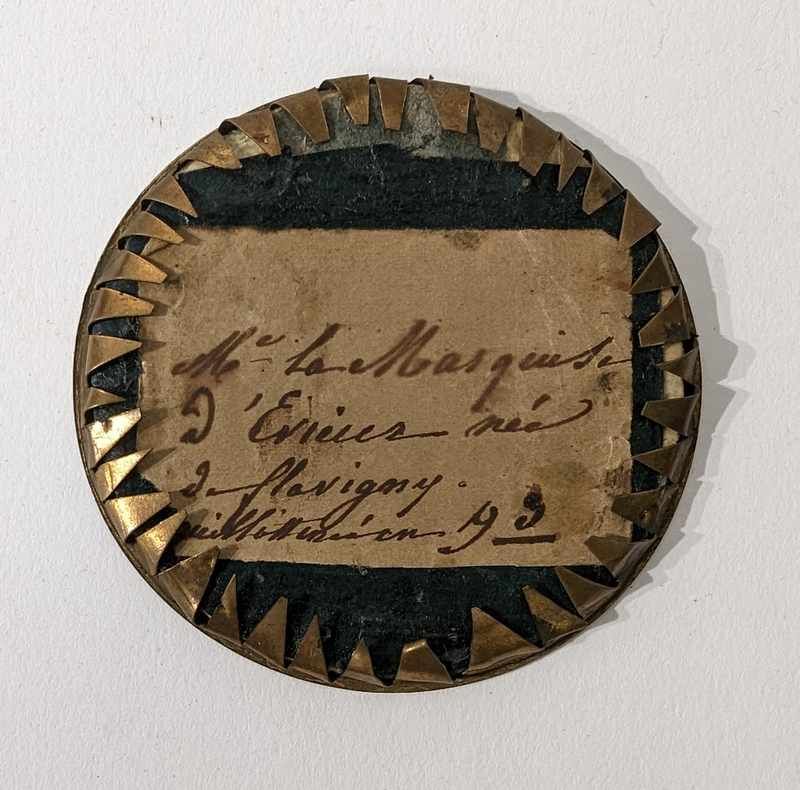 Me la Marquise
D'Evieux née
de flavigny.
guillottinée en 93